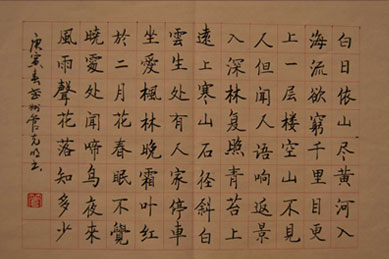 白日依山尽黄河入
海流欲窮千里目更
上一层楼空山不見
人但闻人语响返景
入深林复照青苔上
遠上寒山石径斜白
雲生处有人家停車
坐爱楓林晚霜叶红
於二月花春眠不覺
曉处闻啼鸟夜來
風雨聲花落知多少
庚寅春